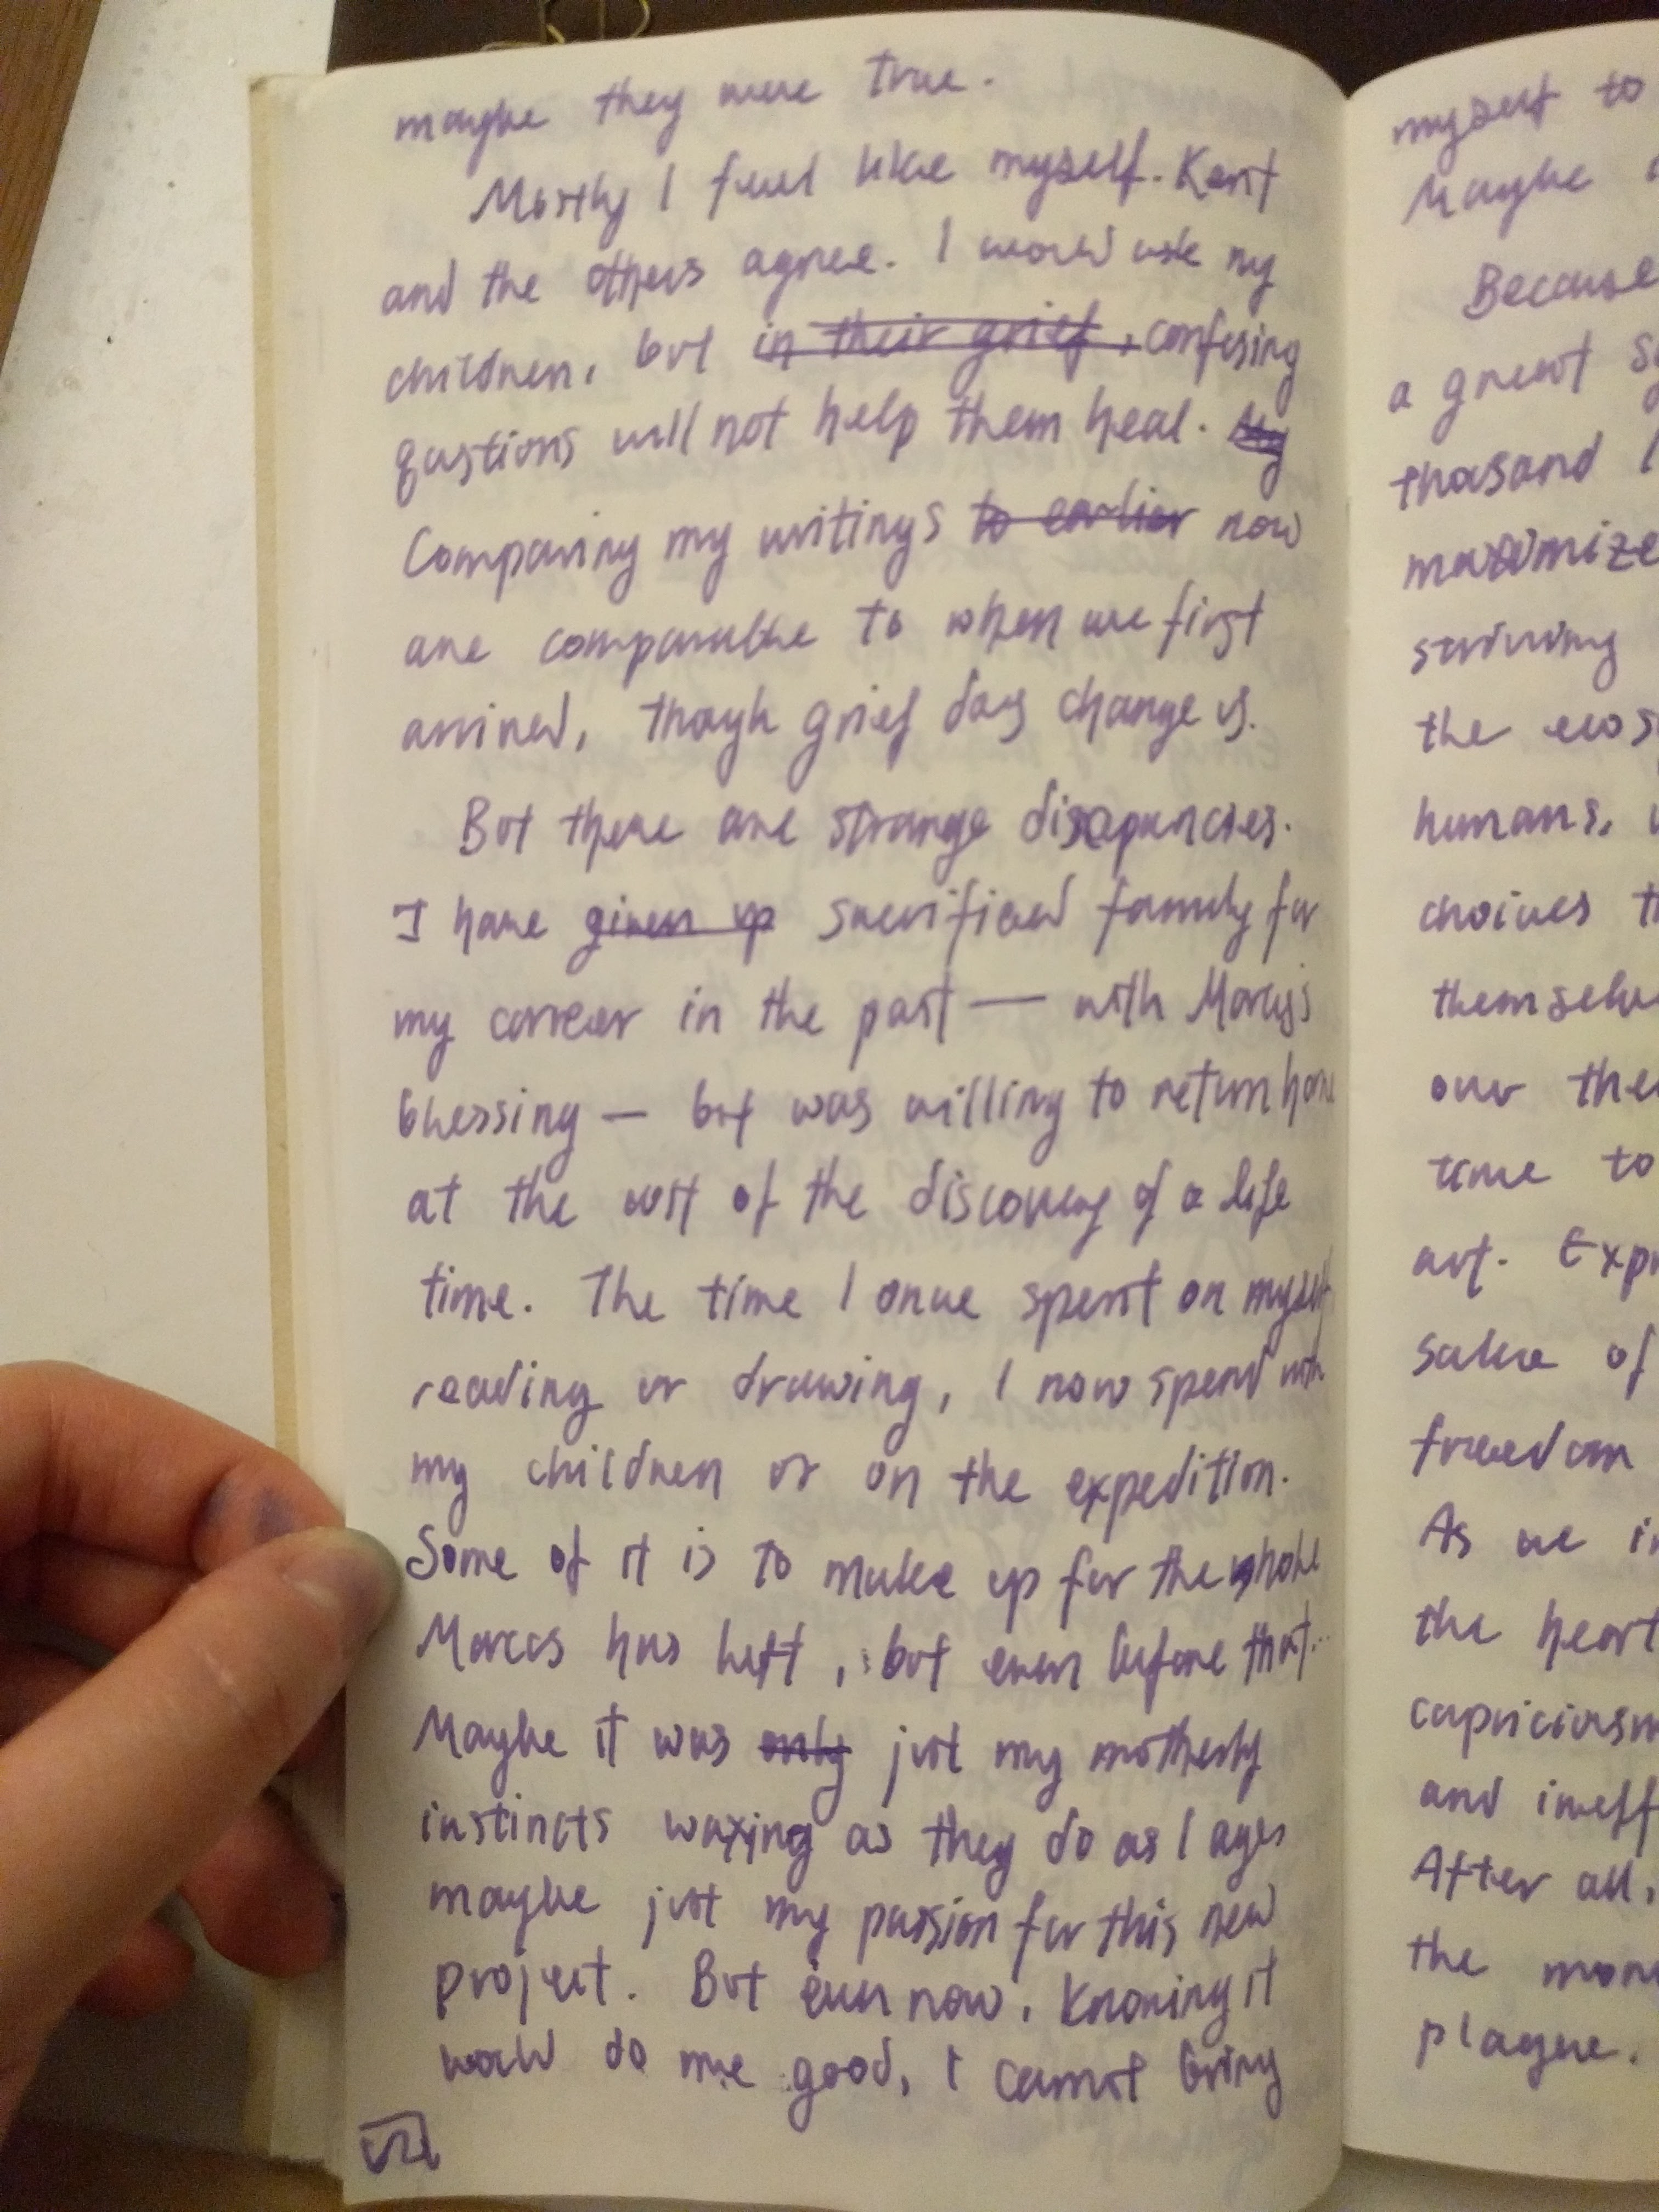 maybe they were true.
Mostly I feel like myself. Kent
and the others agree. I would ask my
children, but in their grief, confusing
qustions will not help them heal. My
Comparing my writings to earlier now
are comparable to when we first
arrived, though grief dos change us.
But there are strange discrepancies.
I have given up sacrificed family for
my career in the past — with Marcus's
blessing — but was willing to return home
at the cost of the discovery of a life
time. The time I once spent on myself
reading or drawing, I now spend with
my children or on the expedition.
Some of it is to make up for the whole
Marcus has left, but even before that...
Maybe it was only just my motherly
instincts waxing as they do as I age,
maybe just my passion for this new
project. But even now, knowing it
would do me good, I cannot bring
myself to
Maybe
Because
a great
thousand
maximize
striving
the
humans,
choices
over
time to
art.
sake of
freedom
As we
the heart
and
After all,
the
plague.